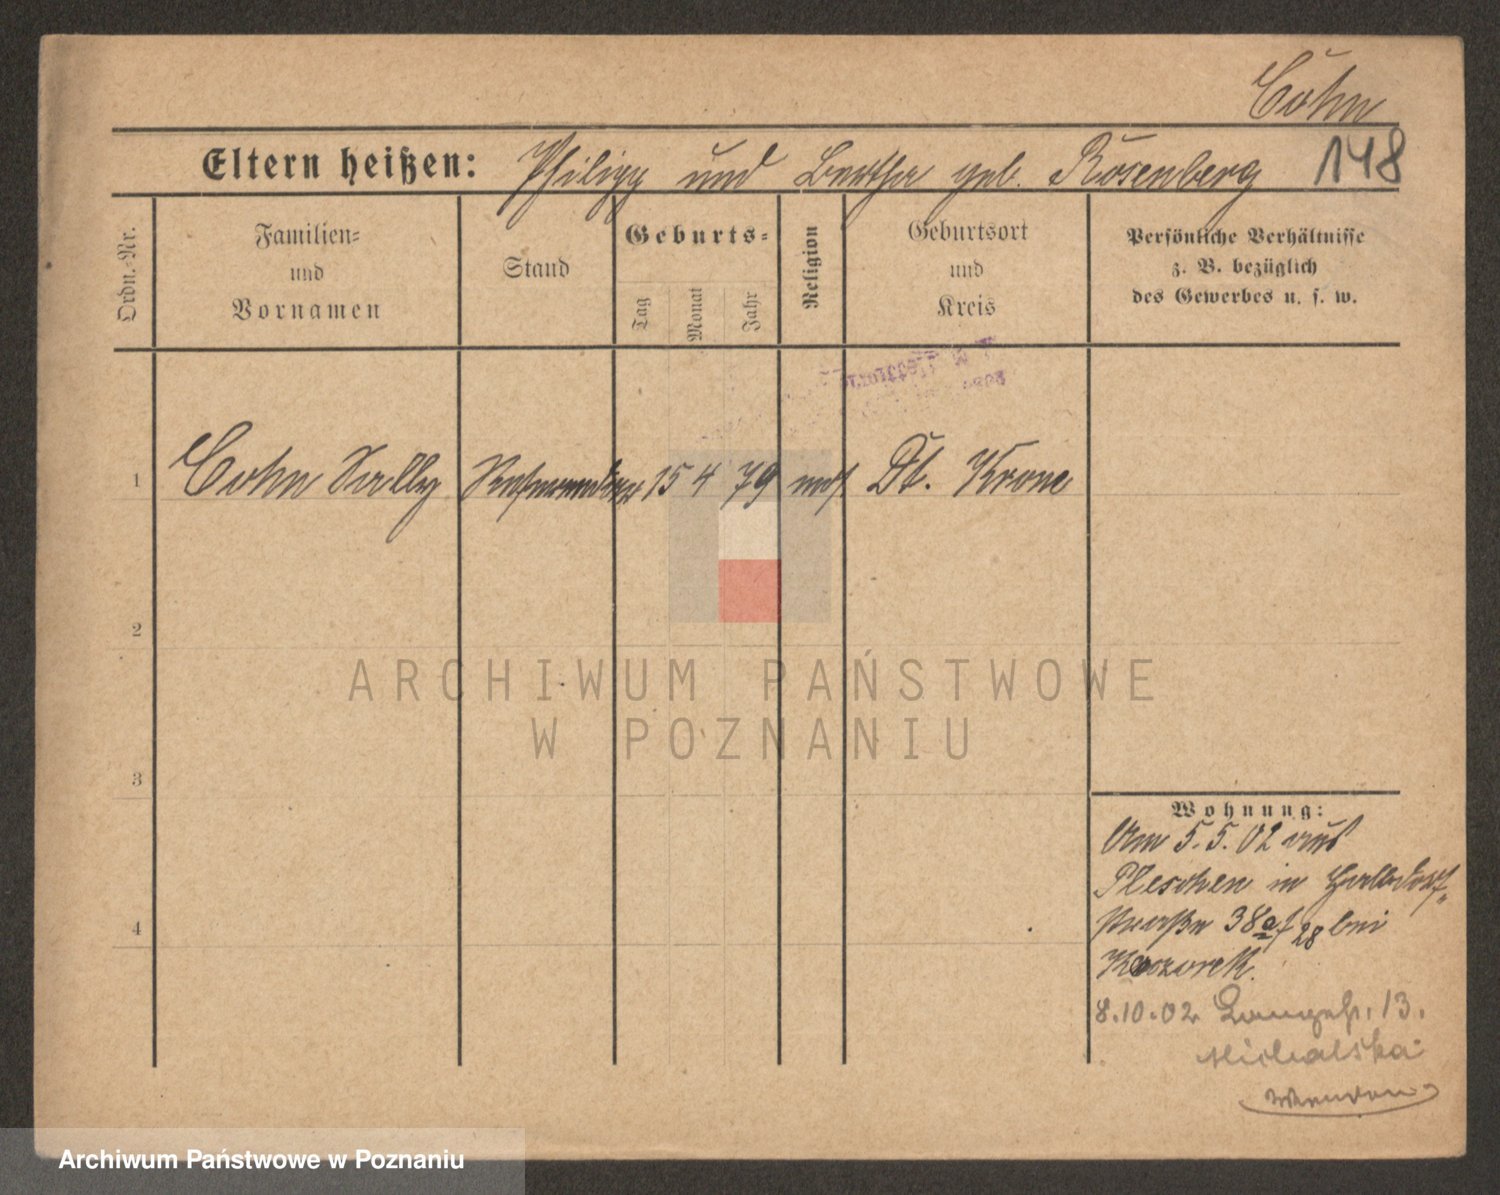 Cohn
Eltern heißen: Philipp und Bertha geb. Rosenberg 148
Ordn.-Nr.
Familien-
und
Vornamen
Stand
Geburts-
Tag
Monat
Jahr
Religion
Geburtsort
und
Kreis
Persönliche Verhältnisse
z. B. bezüglich
des Gewerbes u. s. w.
1 Cohn Sally 15 4 79 mos Dt. Krone
2
3
4
Wohnung:
Am 5.5.02 aus
Pleschen in Halbdorf-
straße 38a/28 bei
8.10.02 Langestr. 13.
Michalska
ARCHIWUM PAŃSTWOWE
W POZNANIU
Archiwum Państwowe w Poznaniu